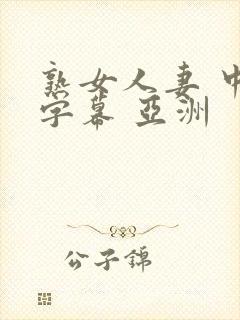 熟女人妻 中
字幕 亞洲
公子錦